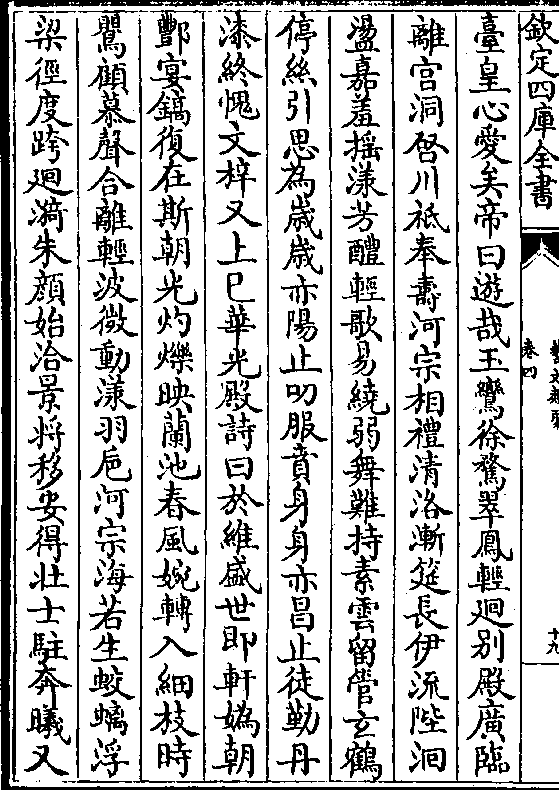 欽定四庫全書
卷四
十九
臺皇心愛矣帝曰遊哉玉鸞徐騖翠鳳輕迴别殿廣臨
離宫洞啓川祗奉壽河宗相禮清洛漸筵長伊流陛洄
盪嘉羞摇漾芳醴輕歌易繞弱舞難持素雲留管玄鶴
停絲引思為歳歳亦陽止叨服賁身身亦昌止徒勤丹
漆終愧文梓又上巳華光殿詩曰於維盛世即軒嬀朝
酆宴鎬復在斯朝光灼爍映蘭池春風婉轉入細枝時
鸎顧慕聲合離輕波微動漾羽巵河宗海若生蛟螭浮
梁徑度跨迴漪朱顔始洽景將移安得壯士駐奔曦又